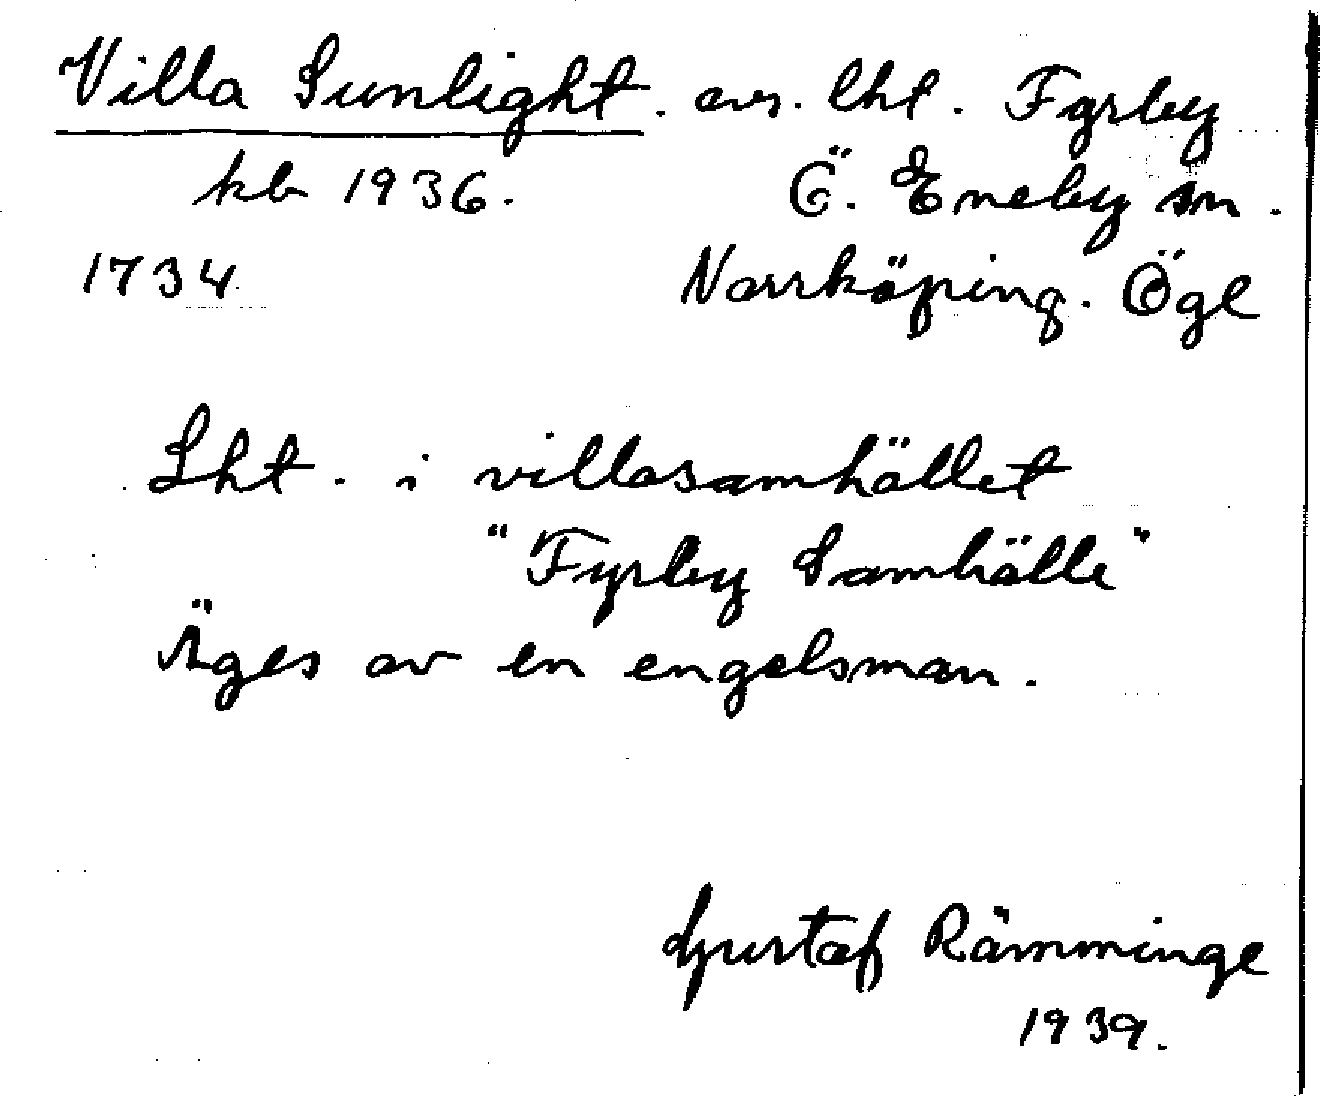 Villa Sunlight. avs. lht. Fyrby
kb 1936. Ö. Eneby sn.
1734 Norrköping. Ögl
Lht. i villasamhället
"Fyrby Samhälle"
Äges av en engelsman.
Gustaf Rämminge
1939.